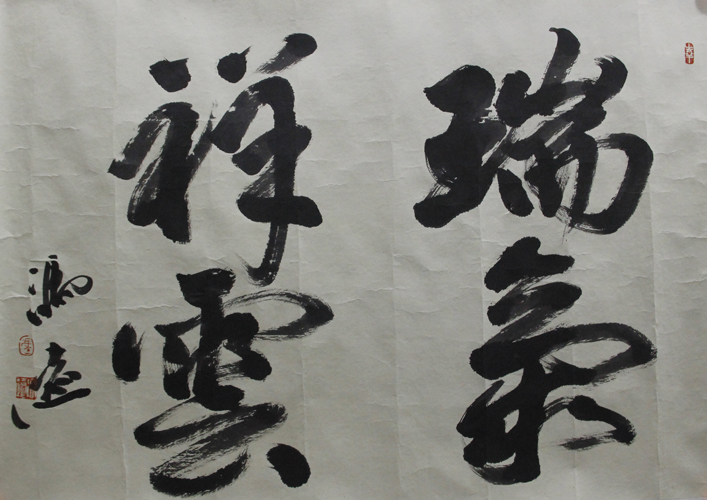 瑞氣
祥雲